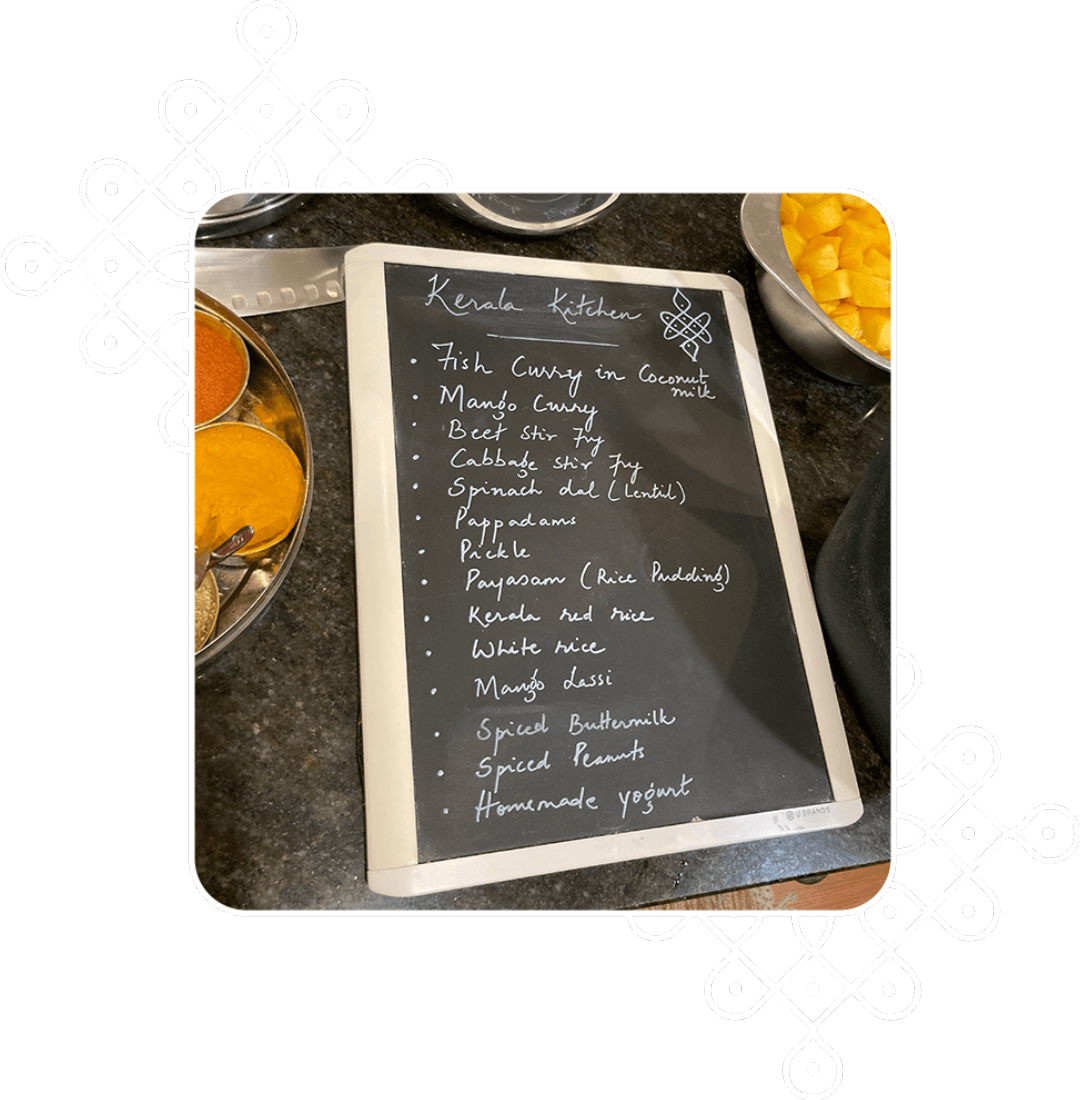 Kerala Kitchen
• Fish Curry in Coconut
milk
• Mango Curry
• Beef stir fry
• Cabbage stir fry
• Spinach dal (Lentil)
• Pappadams
• Pickle
• Payasam (Rice Pudding)
• Kerala red rice
• White rice
• Mango Lassi
• Spiced Buttermilk
• Spiced Peanuts
• Homemade yogurt
U BRANDS